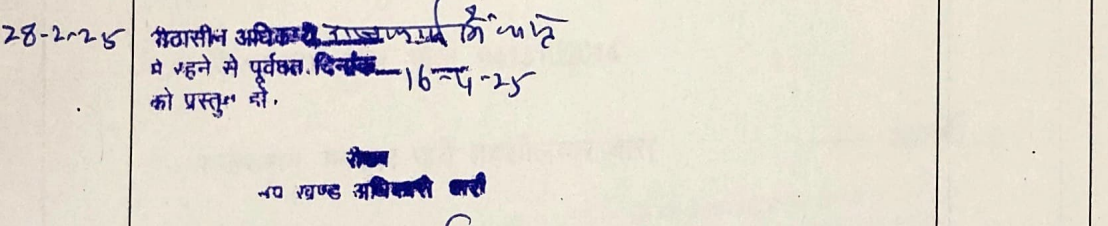 28-2-25 पीठासीन अधिकारी राजकार्य में व्यस्त
मे रहने से पूर्ववत. दिनांक 16-4-25
को प्रस्तुत हो.
रीडर
उप खण्ड अधिकारी